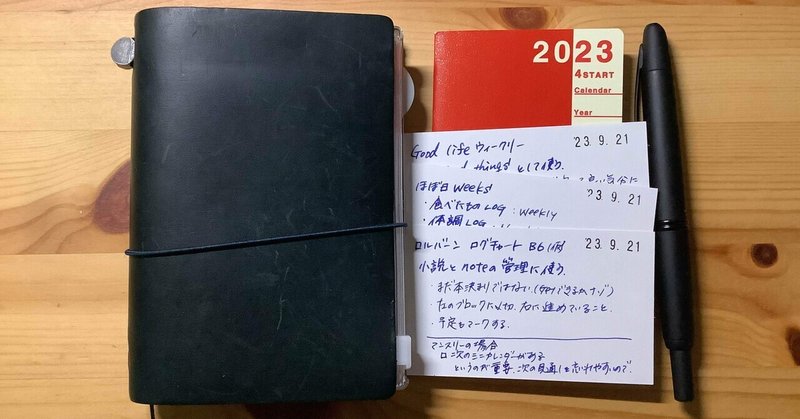 2023
4START
Calendar
Year
'23. 9. 21
Good life ウィークリー
things として使う.
'23. 9. 21
ほぼ日 weeks
・食べたもの LOG : Weekly
・体調 LOG
'23. 9. 21
ロルバーン ログチャート B6
小説と noteの管理に使う.
・まだ本決まりではない.
・左のブロックに〆切. 右に進めていること.
・予定もマークする.
マンスリーの場合
次のミニカレンダーがある
というのが重要. 次の見通しを忘れやすいので.